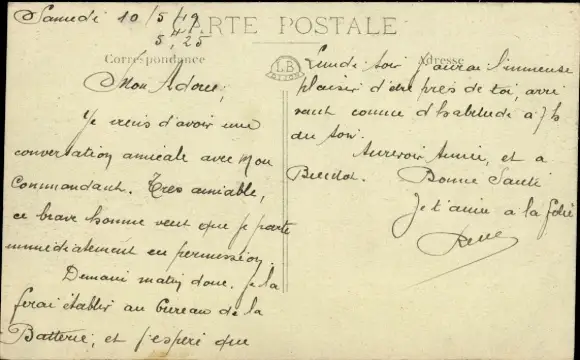 Samedi 10/5/19
5,25
CARTE POSTALE
Correspondance
Adresse
LB
DIJON
Mon Adorée,
Je viens d'avoir une
conversation amicale avec mon
Commandant. Très aimable,
ce brave homme veut que je parte
immédiatement en permission.
Demain matin donc. Je la
ferai établir au bureau de la
Batterie, et j'espère que
Lundi soir j'aurai l'immense
plaisir d'être près de toi, arri
vant comme d'habitude à 7h
du soir.
Aurevoir Aimée, et a
Bientot. Bonne Santé
Je t'aime a la folie
René